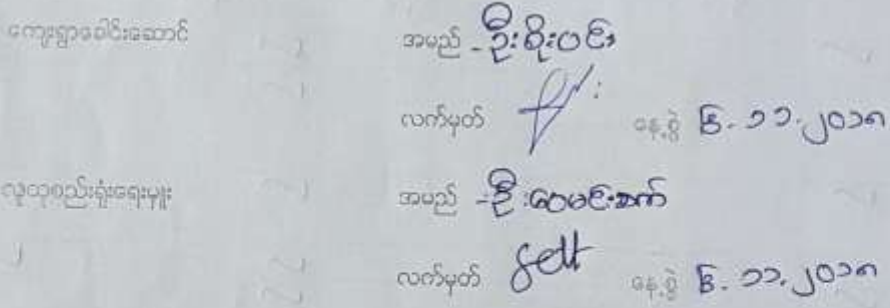 ကျေးရွာခေါင်းဆောင် အမည် - ဦးစိုးဝင်း
လက်မှတ် နေ့စွဲ ၆.၁၁.၂၀၁၈
လူထုစည်းရုံးရေးမှူး အမည် - ဦးဝေမင်းဆက်
လက်မှတ် နေ့စွဲ ၆.၁၁.၂၀၁၈